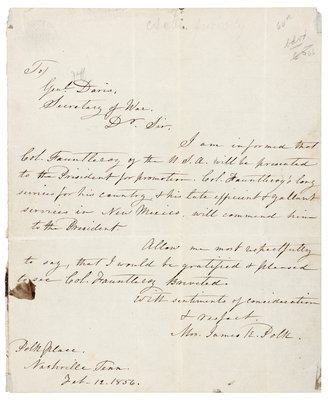 To
Genl. Davis,
Secretary of War.
Dr. Sir.
I am informed that
Col. Fauntleroy of the U.S.A. will be presented
to the President for promotion. Col. Fauntleroy's long
services for his country & his late efficient & gallant
services in New Mexico, will commend him
to the President
Allow me most respectfully
to say, that I would be gratified & pleased
to see Col. Fauntleroy Breveted.
With sentiments of consideration
& respect,
Mrs. James K. Polk.
Polk place.
Nashville Tenn
Feb. 12. 1856.